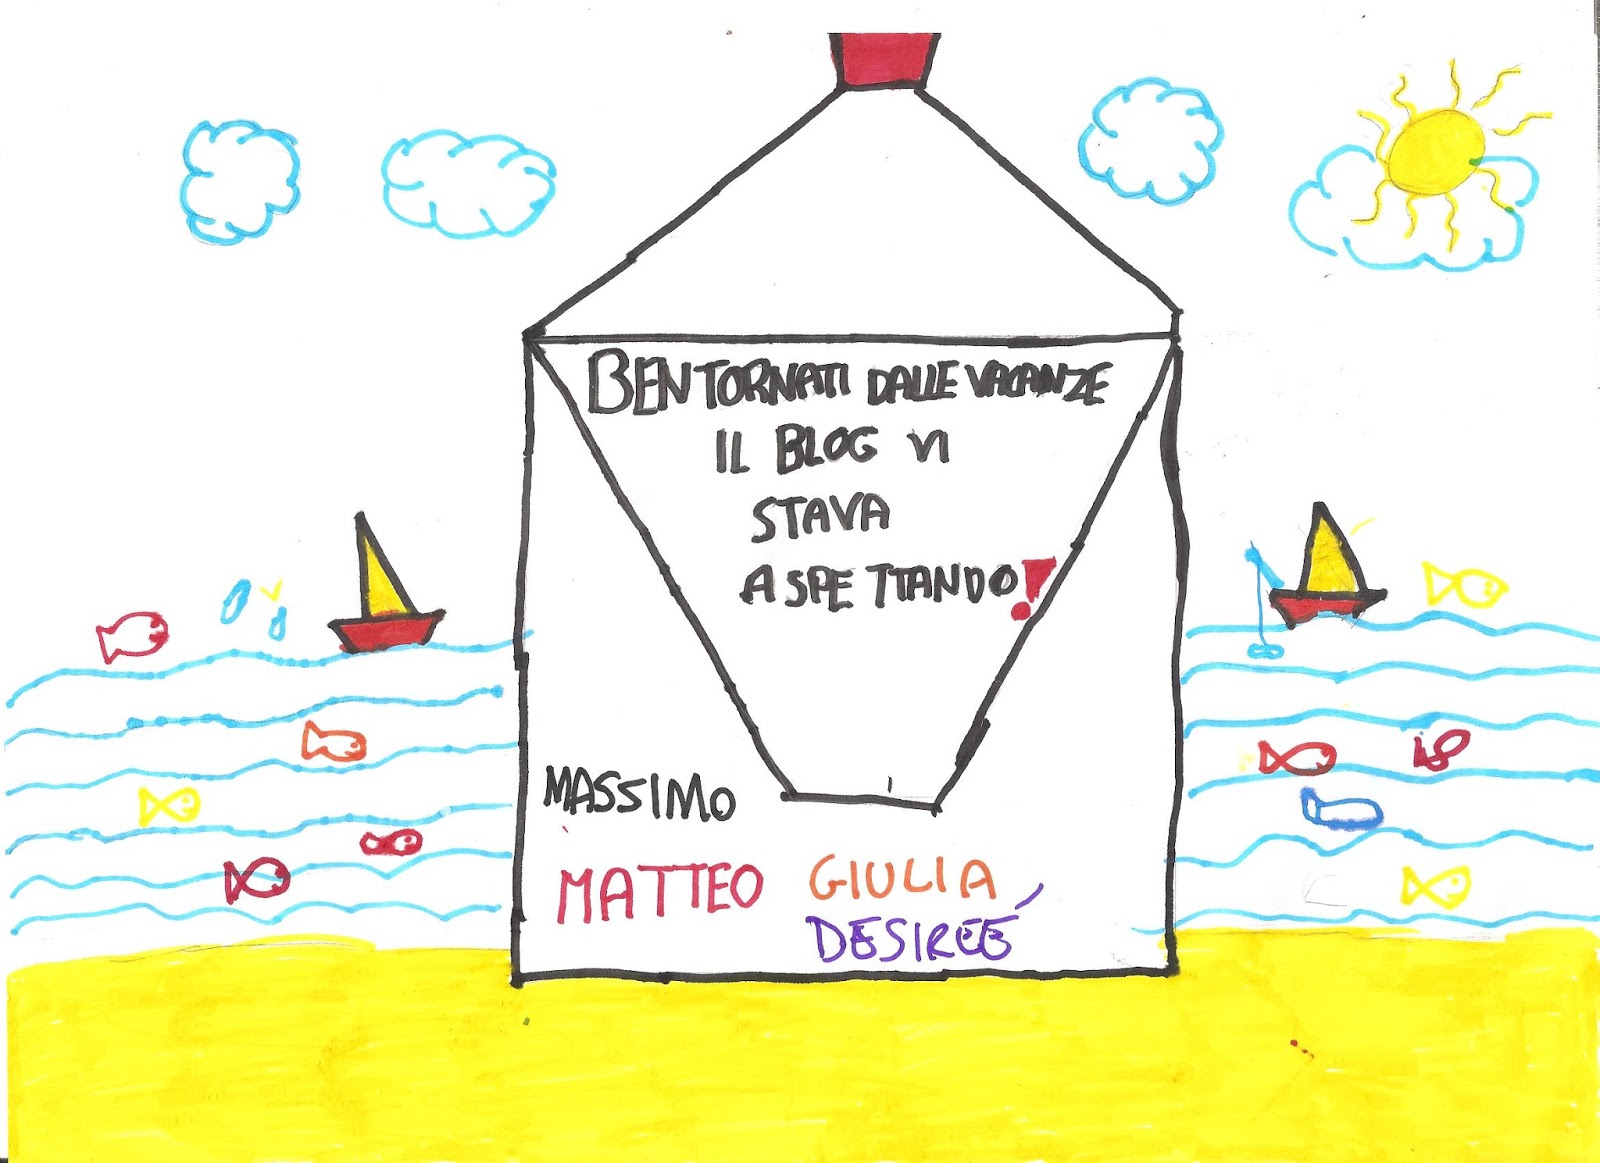 BENTORNATI DALLE VACANZE
IL BLOG VI
STAVA
ASPETTANDO!
MASSIMO
MATTEO GIULIA
DESIREÉ